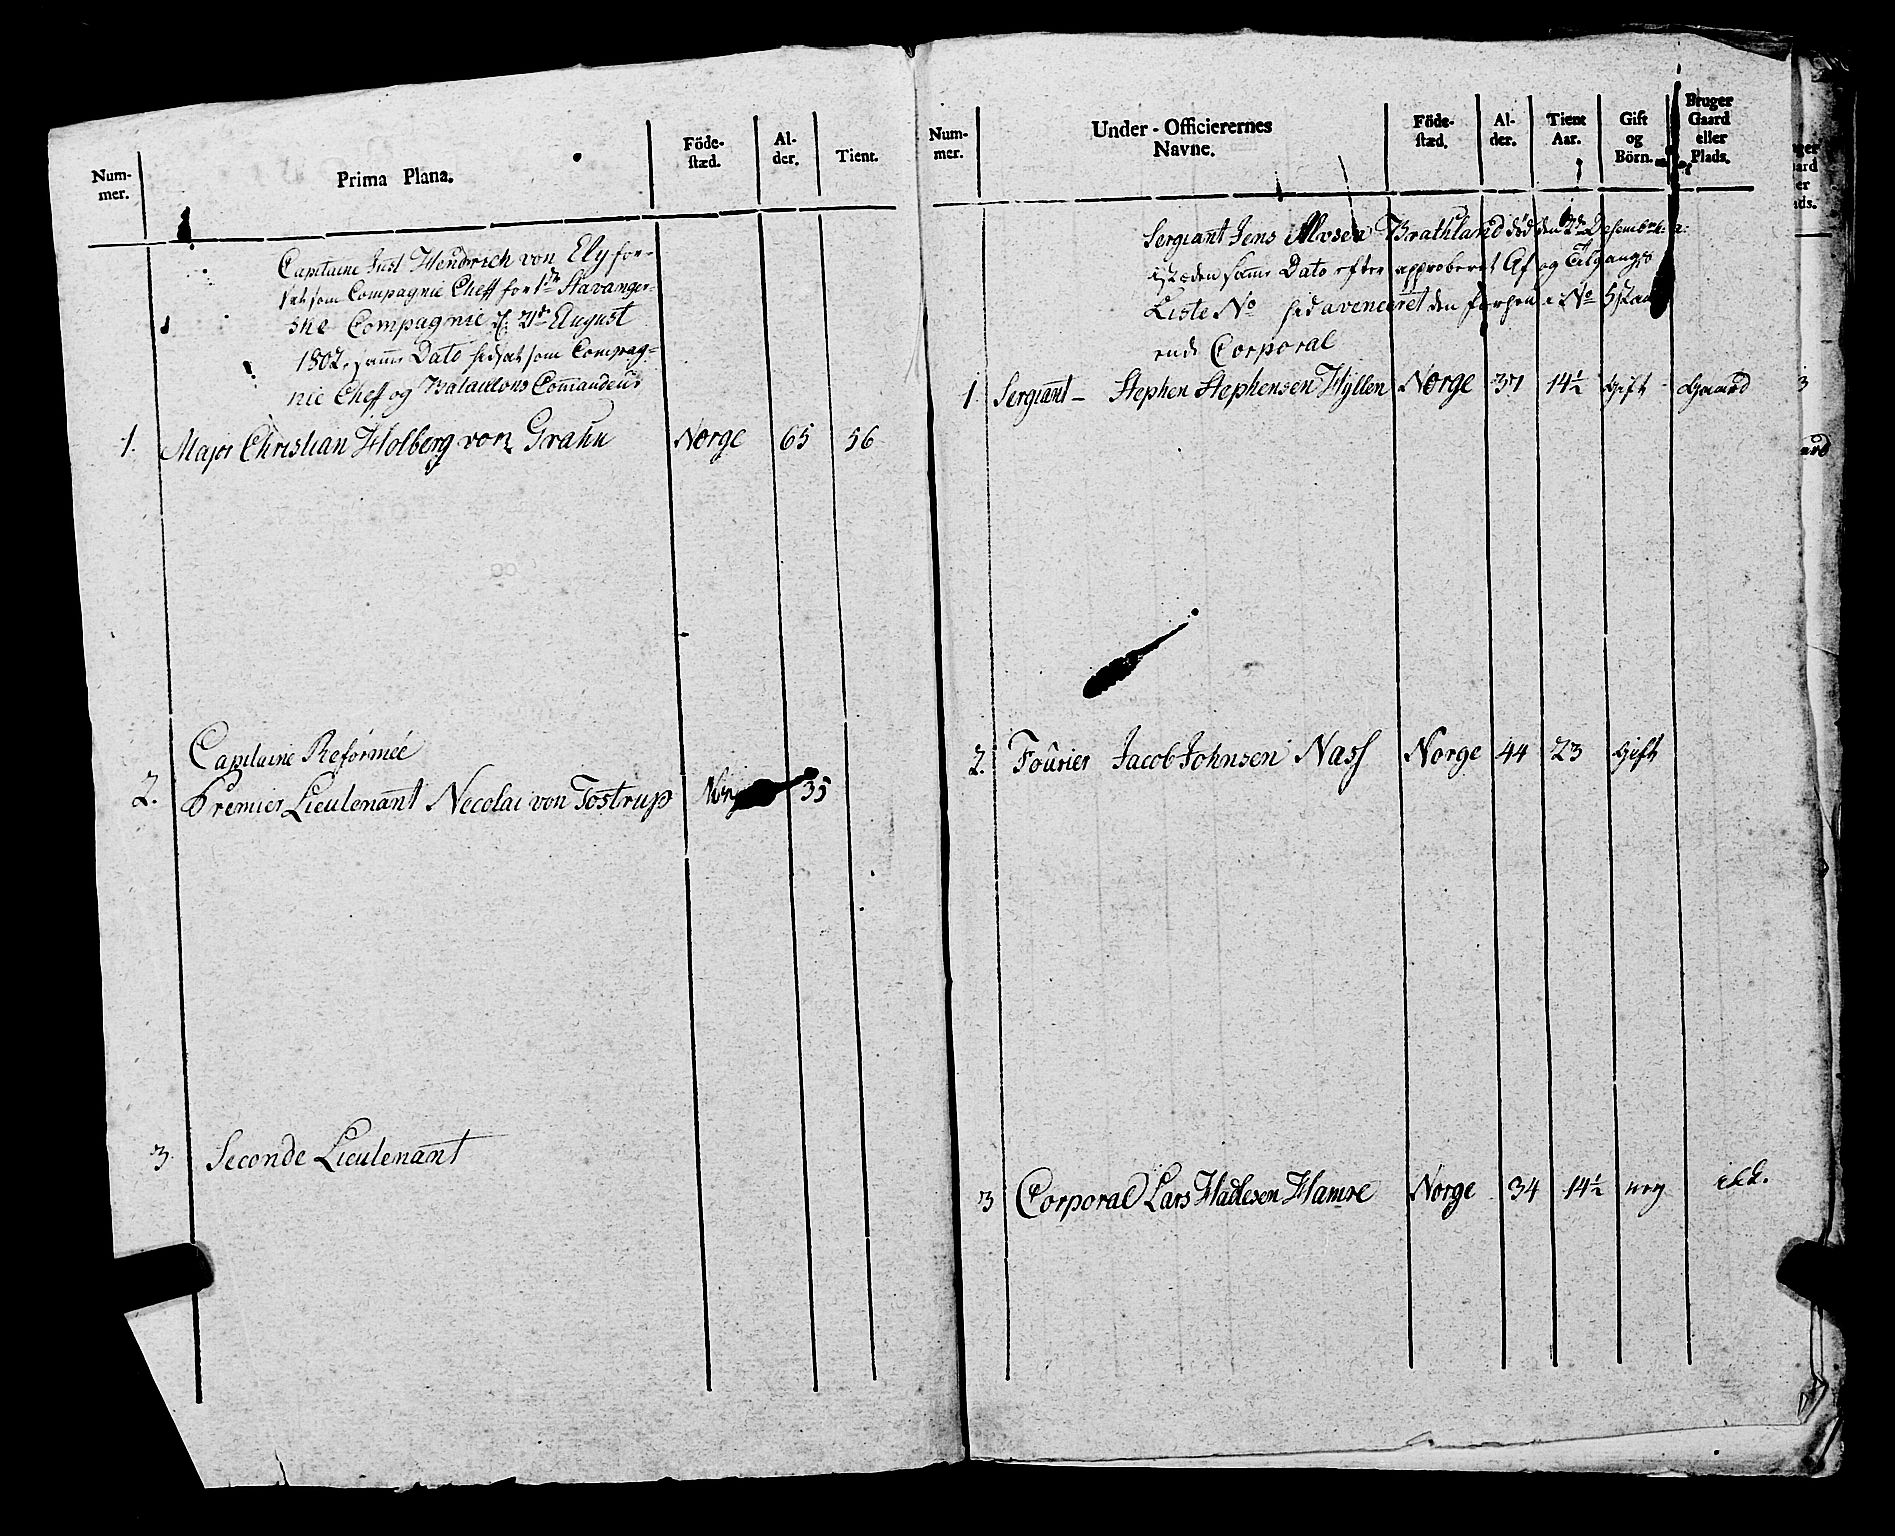 Num-
mer.
Prima Plana.
Föde-
stæd.
Al-
der.
Tient.
Capitaine Just Hendrich von Ely for-
sat som Compagnie Cheff for 1ste Stavanger-
ske Compagnie d: August
1802, samme Dato hidsat som Compag-
nie Cheff og Batailions Commandeur
1. Major Christian Holberg von Grahn Norge 65 56
Capitaine Reformée
2. Premier Lieutenant Necolai von Tostrup 35
3 Seconde Lieutenant
Num-
mer.
Under-Officierernes
Navne.
Föde-
stæd.
Al-
der.
Tient
Aar.
Gift
og
Börn.
Bruger
Gaard
eller
Plads.
Sergiant Jens Brathland død den Desember
isteden samme Dato efter approberet Af og Tilgangs
Liste No hid avenceret den forhen i No 5 staa-
ende Corporal
1. Sergiant - Stephen Stephensen Hyllen Norge 37 14½ Gift - Gaard
2. Fourier Jacob Johnsen Nass Norge 44 23 Gift
3 Corporal Lars Hadlesen Hamre Norge 34 14½ ney ikk.